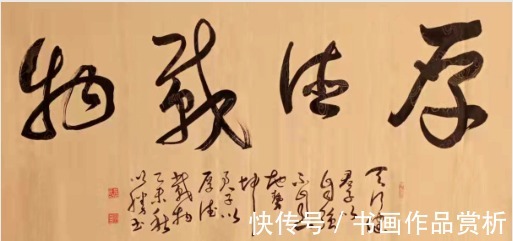 厚德載物
天行健
君子以
自強
不息
地勢
坤
君子以
厚德
載物
乙未秋
快传号 / 书画作品赏析